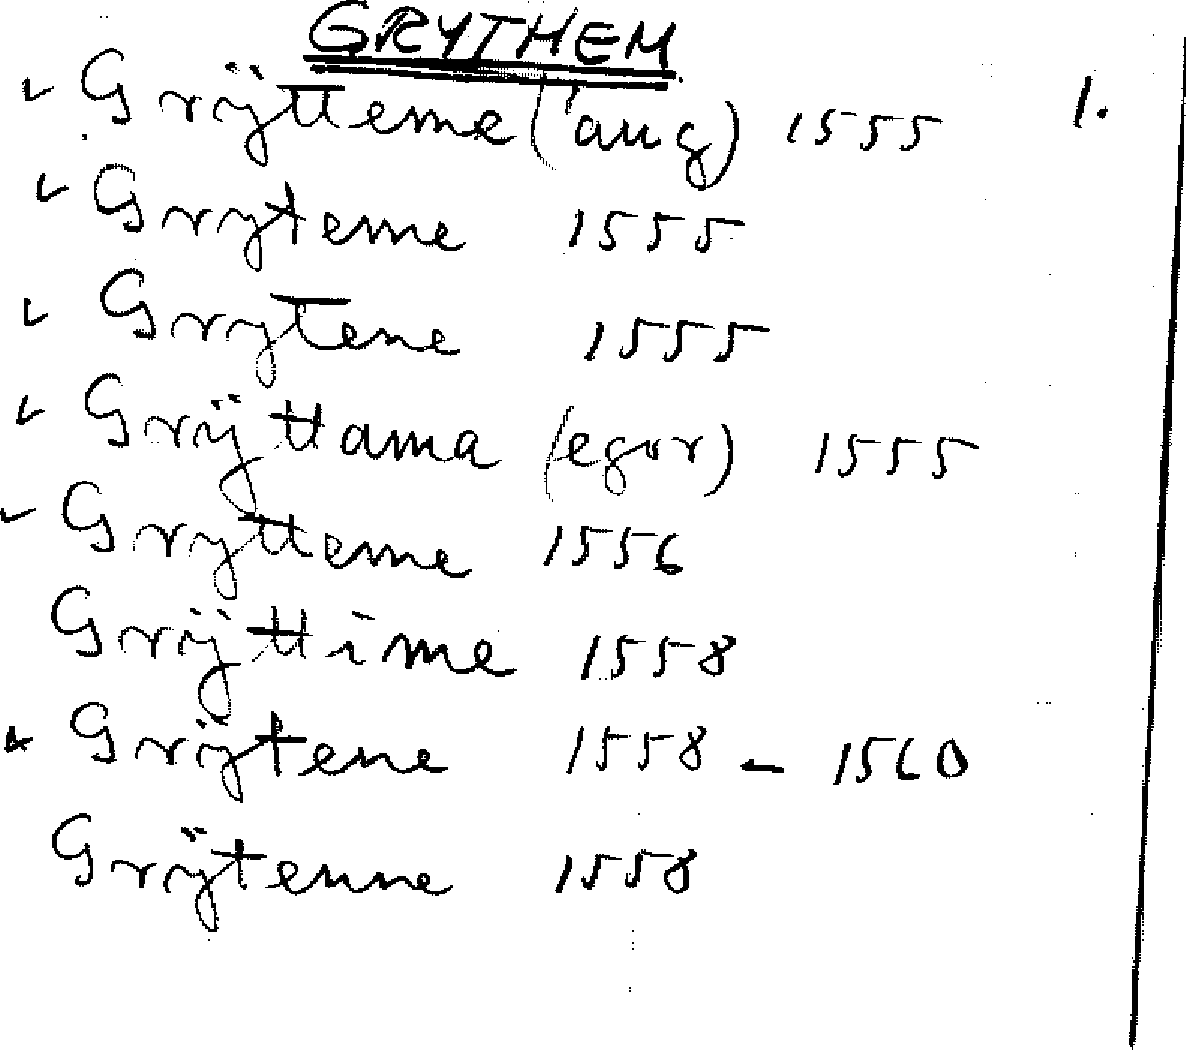 GRYTHEM
✓ Grÿtteme (aug) 1555 1.
✓ Gryteme 1555
✓ Grytene 1555
✓ Grÿttama (egor) 1555
✓ Grytteme 1556
Grÿttime 1558
Grÿtene 1558 - 1560
Grÿtenne 1558